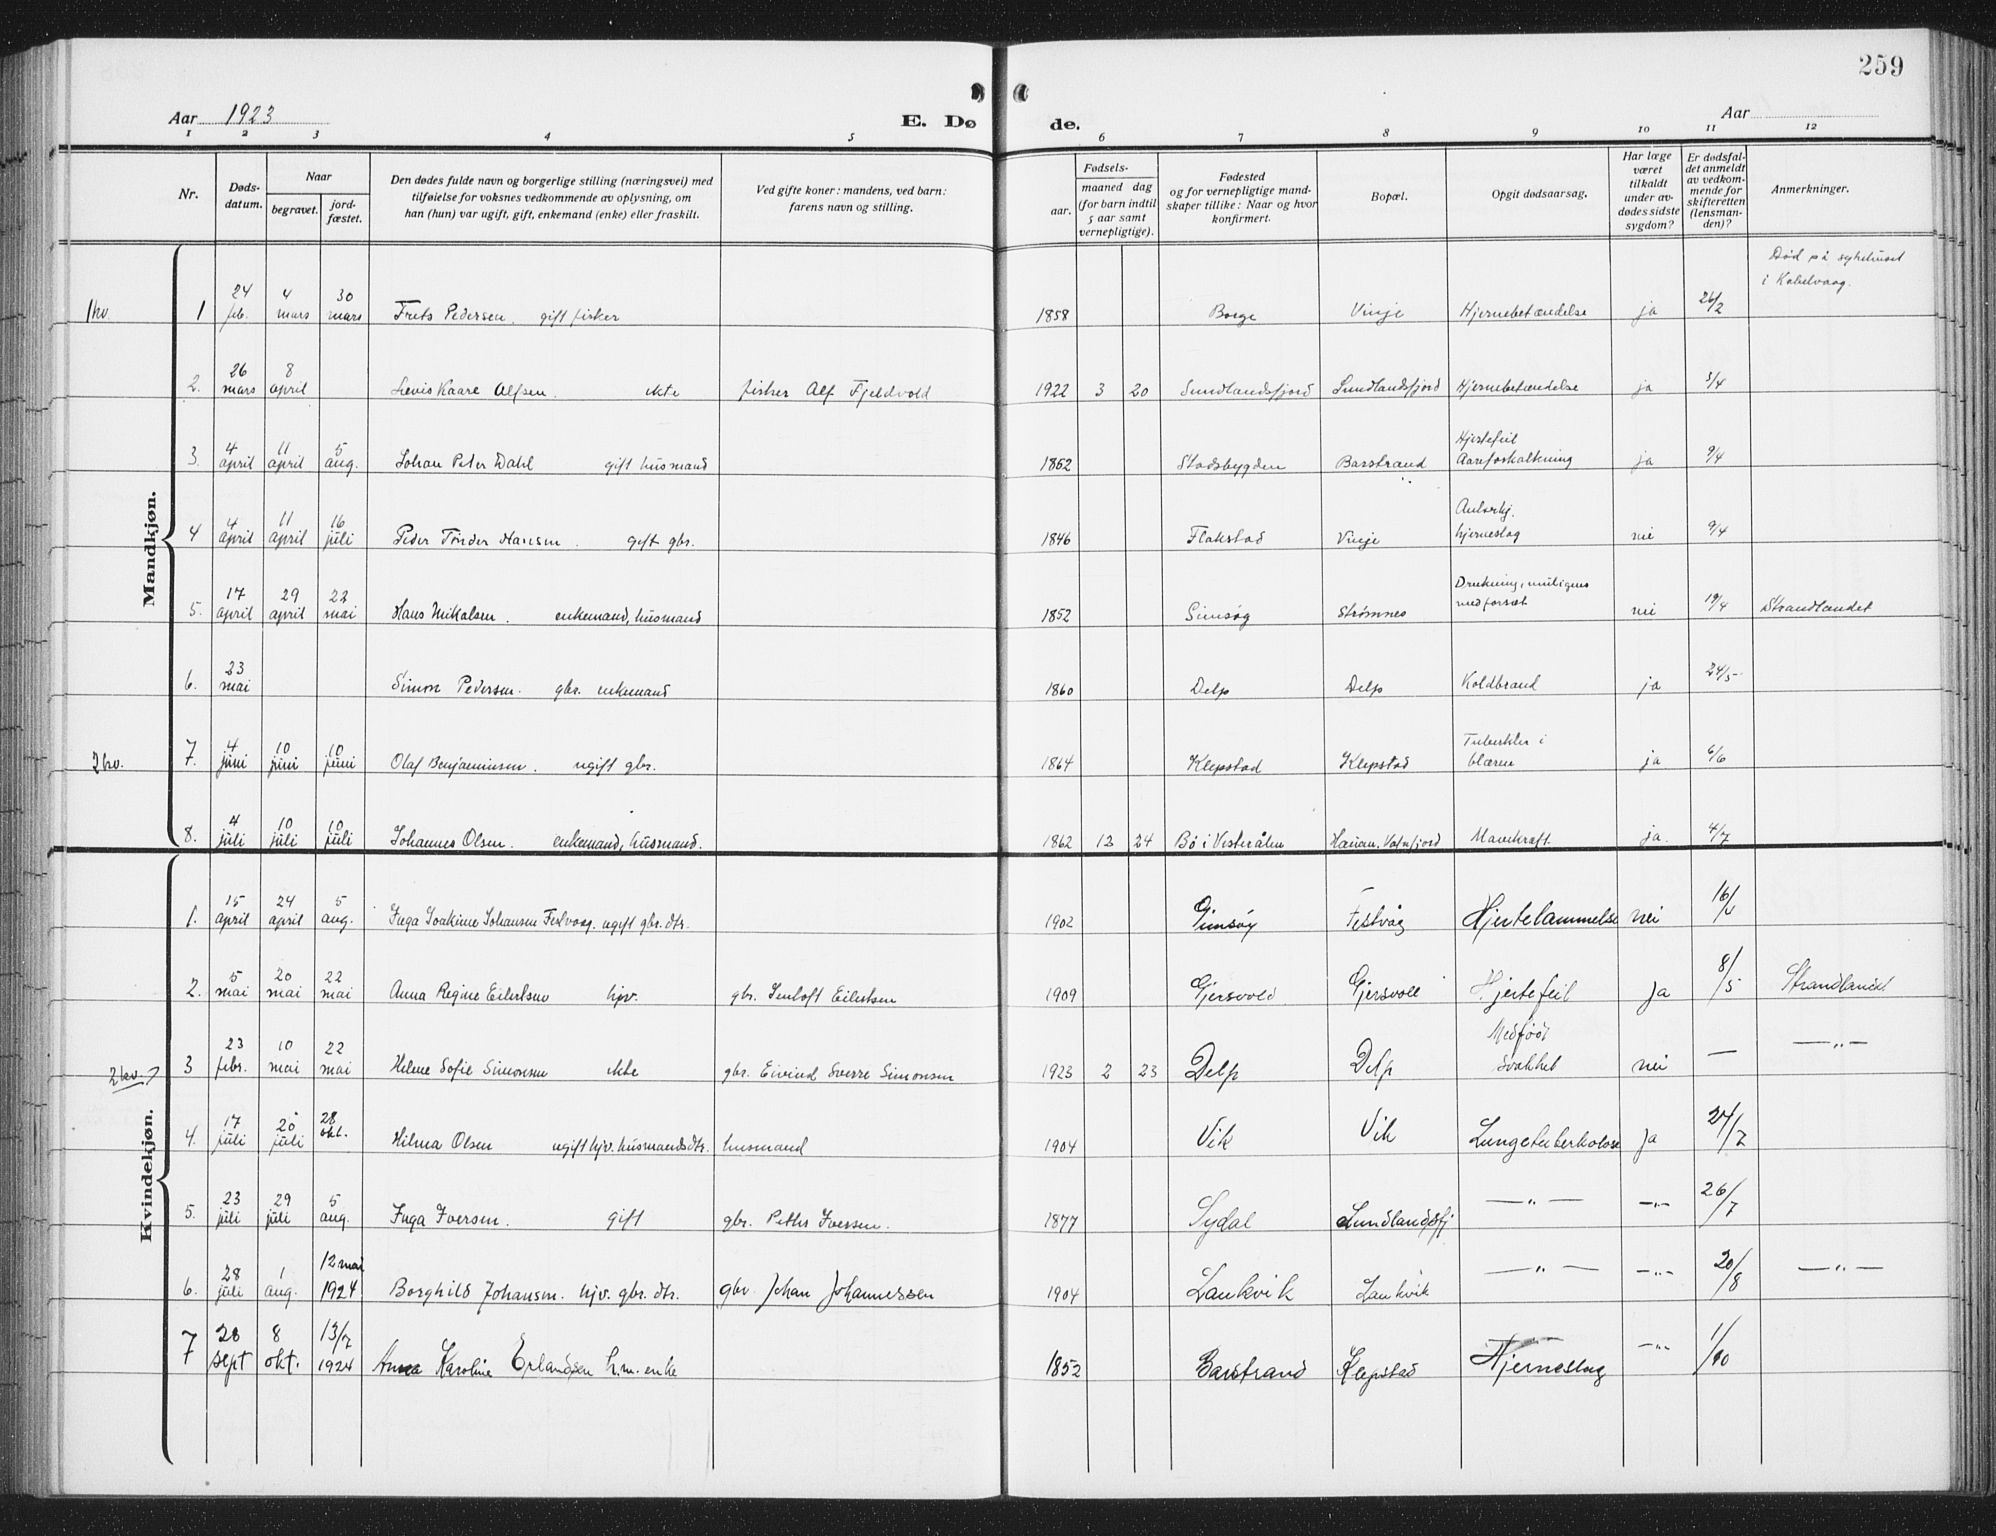 259
Aar 1923
E. Dø
de.
Aar
1 2 3 4 5 6 7 8 9 10 11 12
Nr.
Døds-
datum.
Naar
begravet.
jord-
fæstet.
Den dødes fulde navn og borgerlige stilling (næringsvei) med
tilføielse for voksnes vedkommende av oplysning, om
han (hun) var ugift, gift, enkemand (enke) eller fraskilt.
Ved gifte koner: mandens, ved barn:
farens navn og stilling.
Fødsels-
aar.
maaned dag
(for barn indtil
5 aar samt
vernepligtige).
Fødested
og for vernepligtige mand-
skaper tillike: Naar og hvor
konfirmert.
Bopæl.
Opgit dødsaarsag.
Har læge
været
tilkaldt
under av-
dødes sidste
sygdom?
Er dødsfal-
det anmeldt
av vedkom-
mende for
skifteretten
(lensman-
den)?
Anmerkninger.
Mandkjøn.
1kv. 1 24 feb. 4 mars 30 mars Frets Pedersen. gift fisker 1858 Borge Vinje Hjernebetændelse ja 26/2 Død på sykehuset i Kabelvaag.
2. 26 mars 8 april Levis Kaare Alfsen. ekte fisker Alf Fjeldvold 1922 3 20 Sundlandsfjord Sundlandsfjord Hjernebetændelse ja 3/4
3. 4 april 11 april 5 aug. Johan Peter Dahl gift husmand 1862 Stadsbygden Barstrand Hjertefeil Aareforkalkning ja 9/4
4 4 april 11 april 16 juli Peder Tönder Hansen. gift gbr. 1846 Flakstad Vinje hjerneslag nei 9/4
5. 17 april 29 april 22 mai Hans Mikalsen. enkemand, husmand 1852 Gimsøy Strømnes Drukning, muligens med forsæt nei 19/4 Strandlandet
6. 23 mai Simon Pedersen. gbr. enkemand 1860 Delp Delp Koldbrand ja 24/5
2kv. 7. 4 juni 10 juni 10 juni Olaf Benjaminsen. ugift gbr. 1864 Klepstad Klepstad Tuberkler i blæren ja 6/6
8. 4 juli 10 juli 10 juli Johannes Olsen. enkemand, husmand. 1862 12 24 Bø i Vesterålen Haunan. Vatnfjord Mavekræft. ja. 4/7
Kvindekjøn.
1. 15 april 24 april 5 aug. Inga Joakime Johansen Festvaag. ugift gbr. dtr. 1902 Gimsøy Festvåg Hjertelammelse nei 16/4
2. 5 mai 20 mai 22 mai Anna Regine Eilertsen hjv. gbr. Jentoft Eilertsen 1909 Gjersvold Gjersvoll Hjertefeil ja 8/5 Strandlandet
2kv. 3 23 febr. 10 mai 22 mai Helene Sofie Simonsen ekte gbr. Eivind Sverre Simonsen 1923 2 23 Delp Delp Medfødt svakhet nei — —„—
4. 17 juli 20 juli 28 okt. Hilma Olsen ugift hjv. husmandsdtr. husmand 1904 Vik Vik Lungetuberkolose ja 27/7
5. 23 juli 29 juli 5 aug. Inga Iversen. gift gbr. Peths Iversen. 1877 Sydal Sundlandsfj —„— —„— 26/7
6. 28 juli 1 aug. 12 mai 1924 Borghild Johansen. hjv. gbr. dtr. gbr. Johan Johannessen 1904 Laukvik Laukvik —„— —„— 20/8 —„—
7 28 sept 8 okt. 13/7 1924 Anna Karoline Erlandsen h.m. enke 1852 Barstrand Klepstad Hjerneslag —„— 1/10